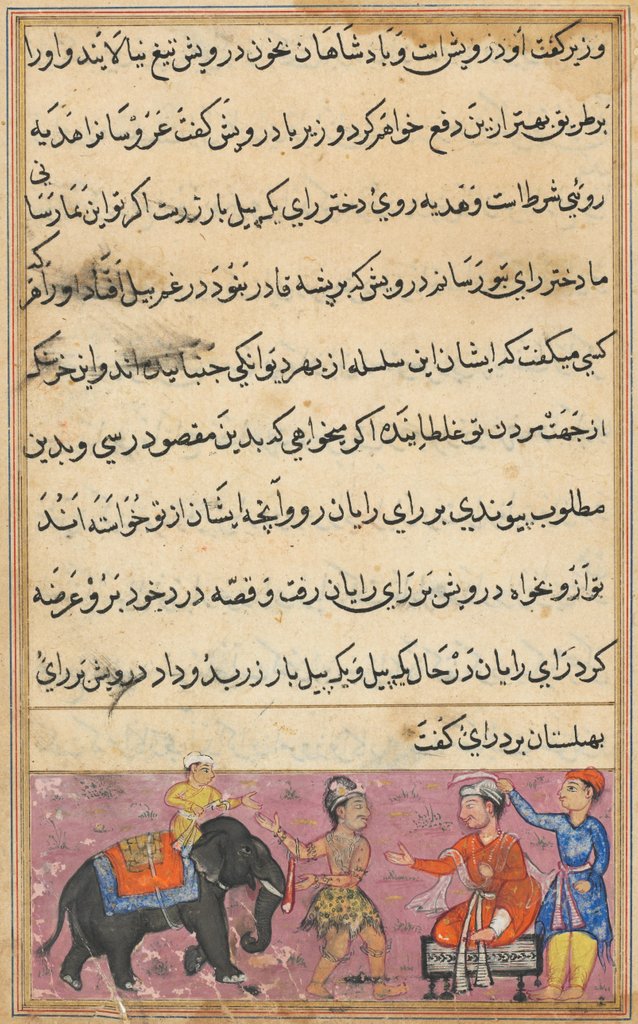 وزیر کفت او درویش است و بادشاهان بخون درویش تیغ نیالایند و اورا
بر طریق بهتر ازین دفع خواهم کرد وزیر با درویش کفت عروسانرا هدیه
روئی شرط است و هدیه روئ دختر رای یک پیل بار زرست اکر تو این بما رسانی
ما دختر رای بتو رسانم درویش که بر پشه قادر نبود در غم پیل افتاد اورا هر که
کسی میکفت که ایشان این سلسله از بهر دیوانکی جنبانیده اند و این خرسنک
از جهت مردن تو غلطاینده اکر میخواهی که بدین مقصود رسی و بدین
مطلوب پیوندی بر رای رایان رو و آنچه ایشان از تو خواسته اند
تو ازو بخواه درویش بر رای رایان رفت و قصه درد خود برو عرضه
کرد رای رایان در حال یک پیل و یک پیل بار زر بدو داد درویش بر رای
بهلستان برد رای کفت